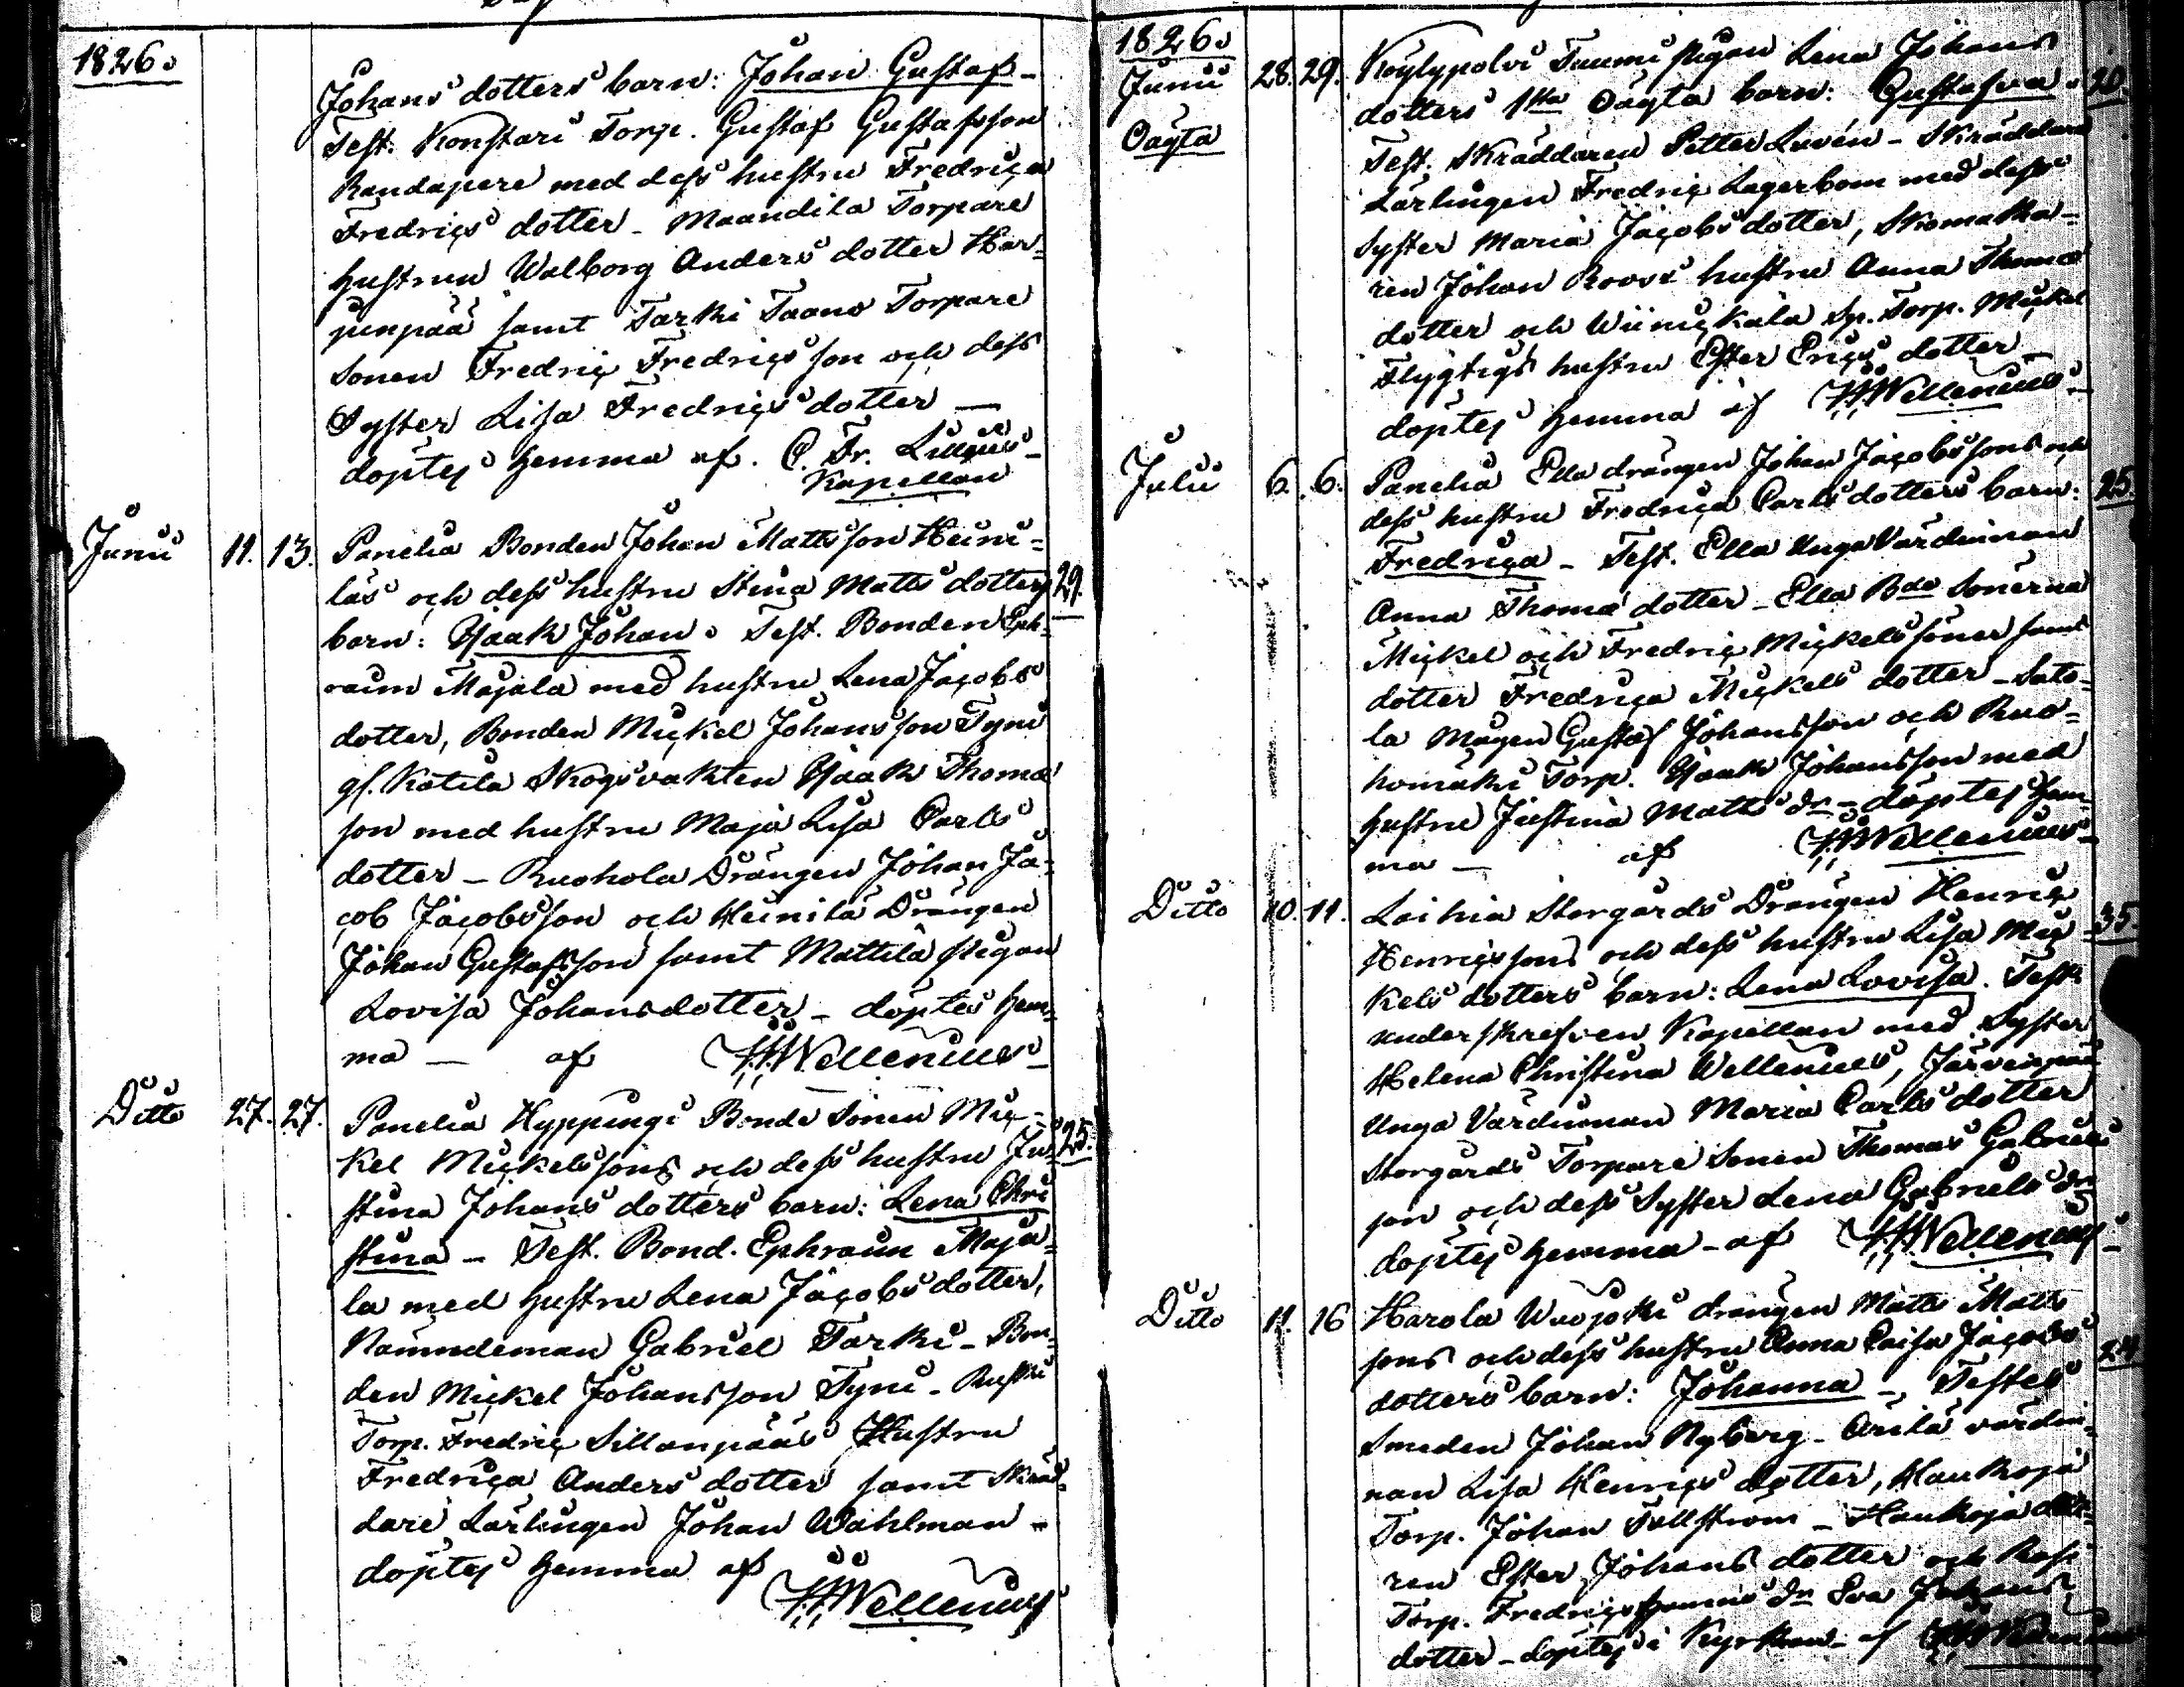 1826.
Johans dotters barn: Johan Gustaf_
Test. Konstari Torp. Gustaf Gustafsson
Randapere med dess hustru Fredrica
Fredrics dotter _ Maandila Torpare
hustrun Walborg Anders dotter Har=
junpää samt Tarki Taano Torpare
Sonen Fredric Fredricsson och dess
Syster Lisa Fredrics dotter _
döptes hemma af. C. Fr. Lillius_
Kapellan
Junii 11. 13. Panelia Bonden Johan Mattsson Heini=
läs och dess hustru Stina Matts dotters 29.
barn: Isaak Johan. Test. Bonden Eph=
raim Majala med hustru Lena Jacobs
dotter, Bonden Mickel Johansson Tyni
gl. Kotila Skogsvakten Isaak Thomæ
son med hustru Maja Lisa Carls
dotter _ Ruohola Drängen Johan Ja=
cob Jacobsson och Heinilä Drängen
Johan Gustafsson samt Mattila pigan
Lovisa Johansdotter _ döptes hem=
ma _ af Wellenius_
Ditto 27. 27. Panelia Hyppingi Bonde Sonen Mic=
kel Mickelssons och dess hustru Ju= 25.
stina Johans dotters barn: Lena Chri
stina _ Test. Bond. Ephraim Maja=
la med hustru Lena Jacobs dotter,
Nämndeman Gabriel Tarki _ Bon=
den Mickel Johansson Tyni _
Torp. Fredric Sillanpääs Hustru
Fredrica Anders dotter samt Skräd=
dare Lärlingen Johan Wahlman _
döptes hemma af
Wellenius
1826.
Junii 28. 29. Köylypolvi Tuumi pigan Lena Johans
Oägta
dotters 1sta Oägta barn: Gustafva. 20.
Test. Skräddaren Petter Lavén _ Skräddare
Lärlingen Fredric Lagerbom med dess
Syster Maria Jacobs dotter, Skomaka=
ren Johan Roos's hustru Anna Thomæ
dotter och Wiinickala Sp. Torp. Mickel
Flygtigs hustru Ester Erics dotter
döptes hemma af Wellenius_
Julii 6. 6. Panelia Ella drängen Johan Jacobssons och
dess hustru Fredrica Carls dotters barn: 25.
Fredrica _ Test. Ella Unga Värdinnan
Anna Thomæ dotter _ Ella Bde Sönerna
Mickel och Fredric Mickelssöner samt
dotter Fredrica Mickels dotter _ Sato=
la Mågen Gustaf Johansson och Ruo=
homäki Torp. Isaak Johansson med
hustru Justina Matts dr _ döptes hem=
ma _ af Wellenius_
Ditto 10. 11. Laihia Storgårds Drängen Henric
Henricssons och dess hustru Lisa Mic= 35.
kels dotters barn: Lena Lovisa. Test.
underskrefven Kapellan med Syster
Helena Christina Wellenius, Järvenpää
Unga Värdinnan Maria Carls dotter
Storgårds Torpare Sonen Thomas Gabriels
son och dess Syster Lena Gabriels dr
döptes hemma _ af Wellenius_
Ditto 11. 16 Harola Wuojoki drängen Matts Matts
sons och dess hustru Anna Caisa Jacobs 24.
dotters barn: Johanna _ Testes
Smeden Johan Nyberg _ Arilä värdin=
nan Lisa Henrics dotter, Haukoja
Torp. Johan Tällström _ Haukoja
Ester Johans dotter och
Torp. Fredrics dr Eva Johans
dotter _ döptes i Kyrkan _ af Wellenius